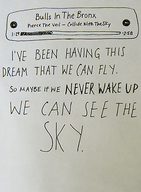 Bulls In The Bronx
Pierce The Veil - Collide With The Sky
I'VE BEEN HAVING THIS
DREAM THAT WE CAN FLY.
SO MAYBE IF WE NEVER WAKE UP
WE CAN SEE THE
SKY.